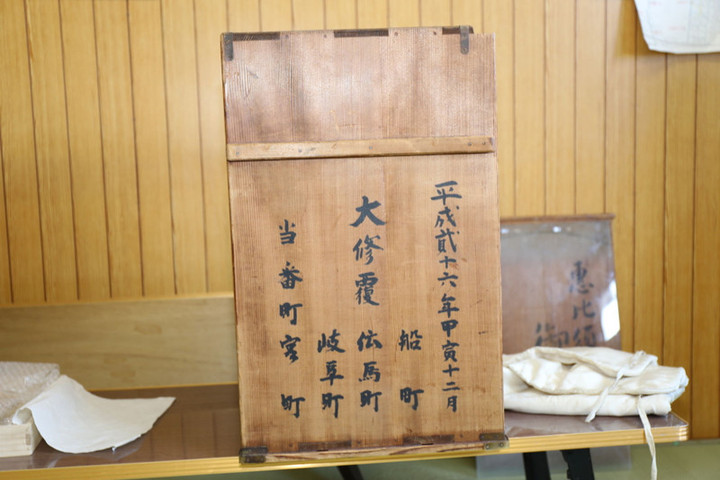 平成貮十六年甲寅十二月
船町
大修覆
伝馬町
岐阜町
当番町宮町
恵比須
御